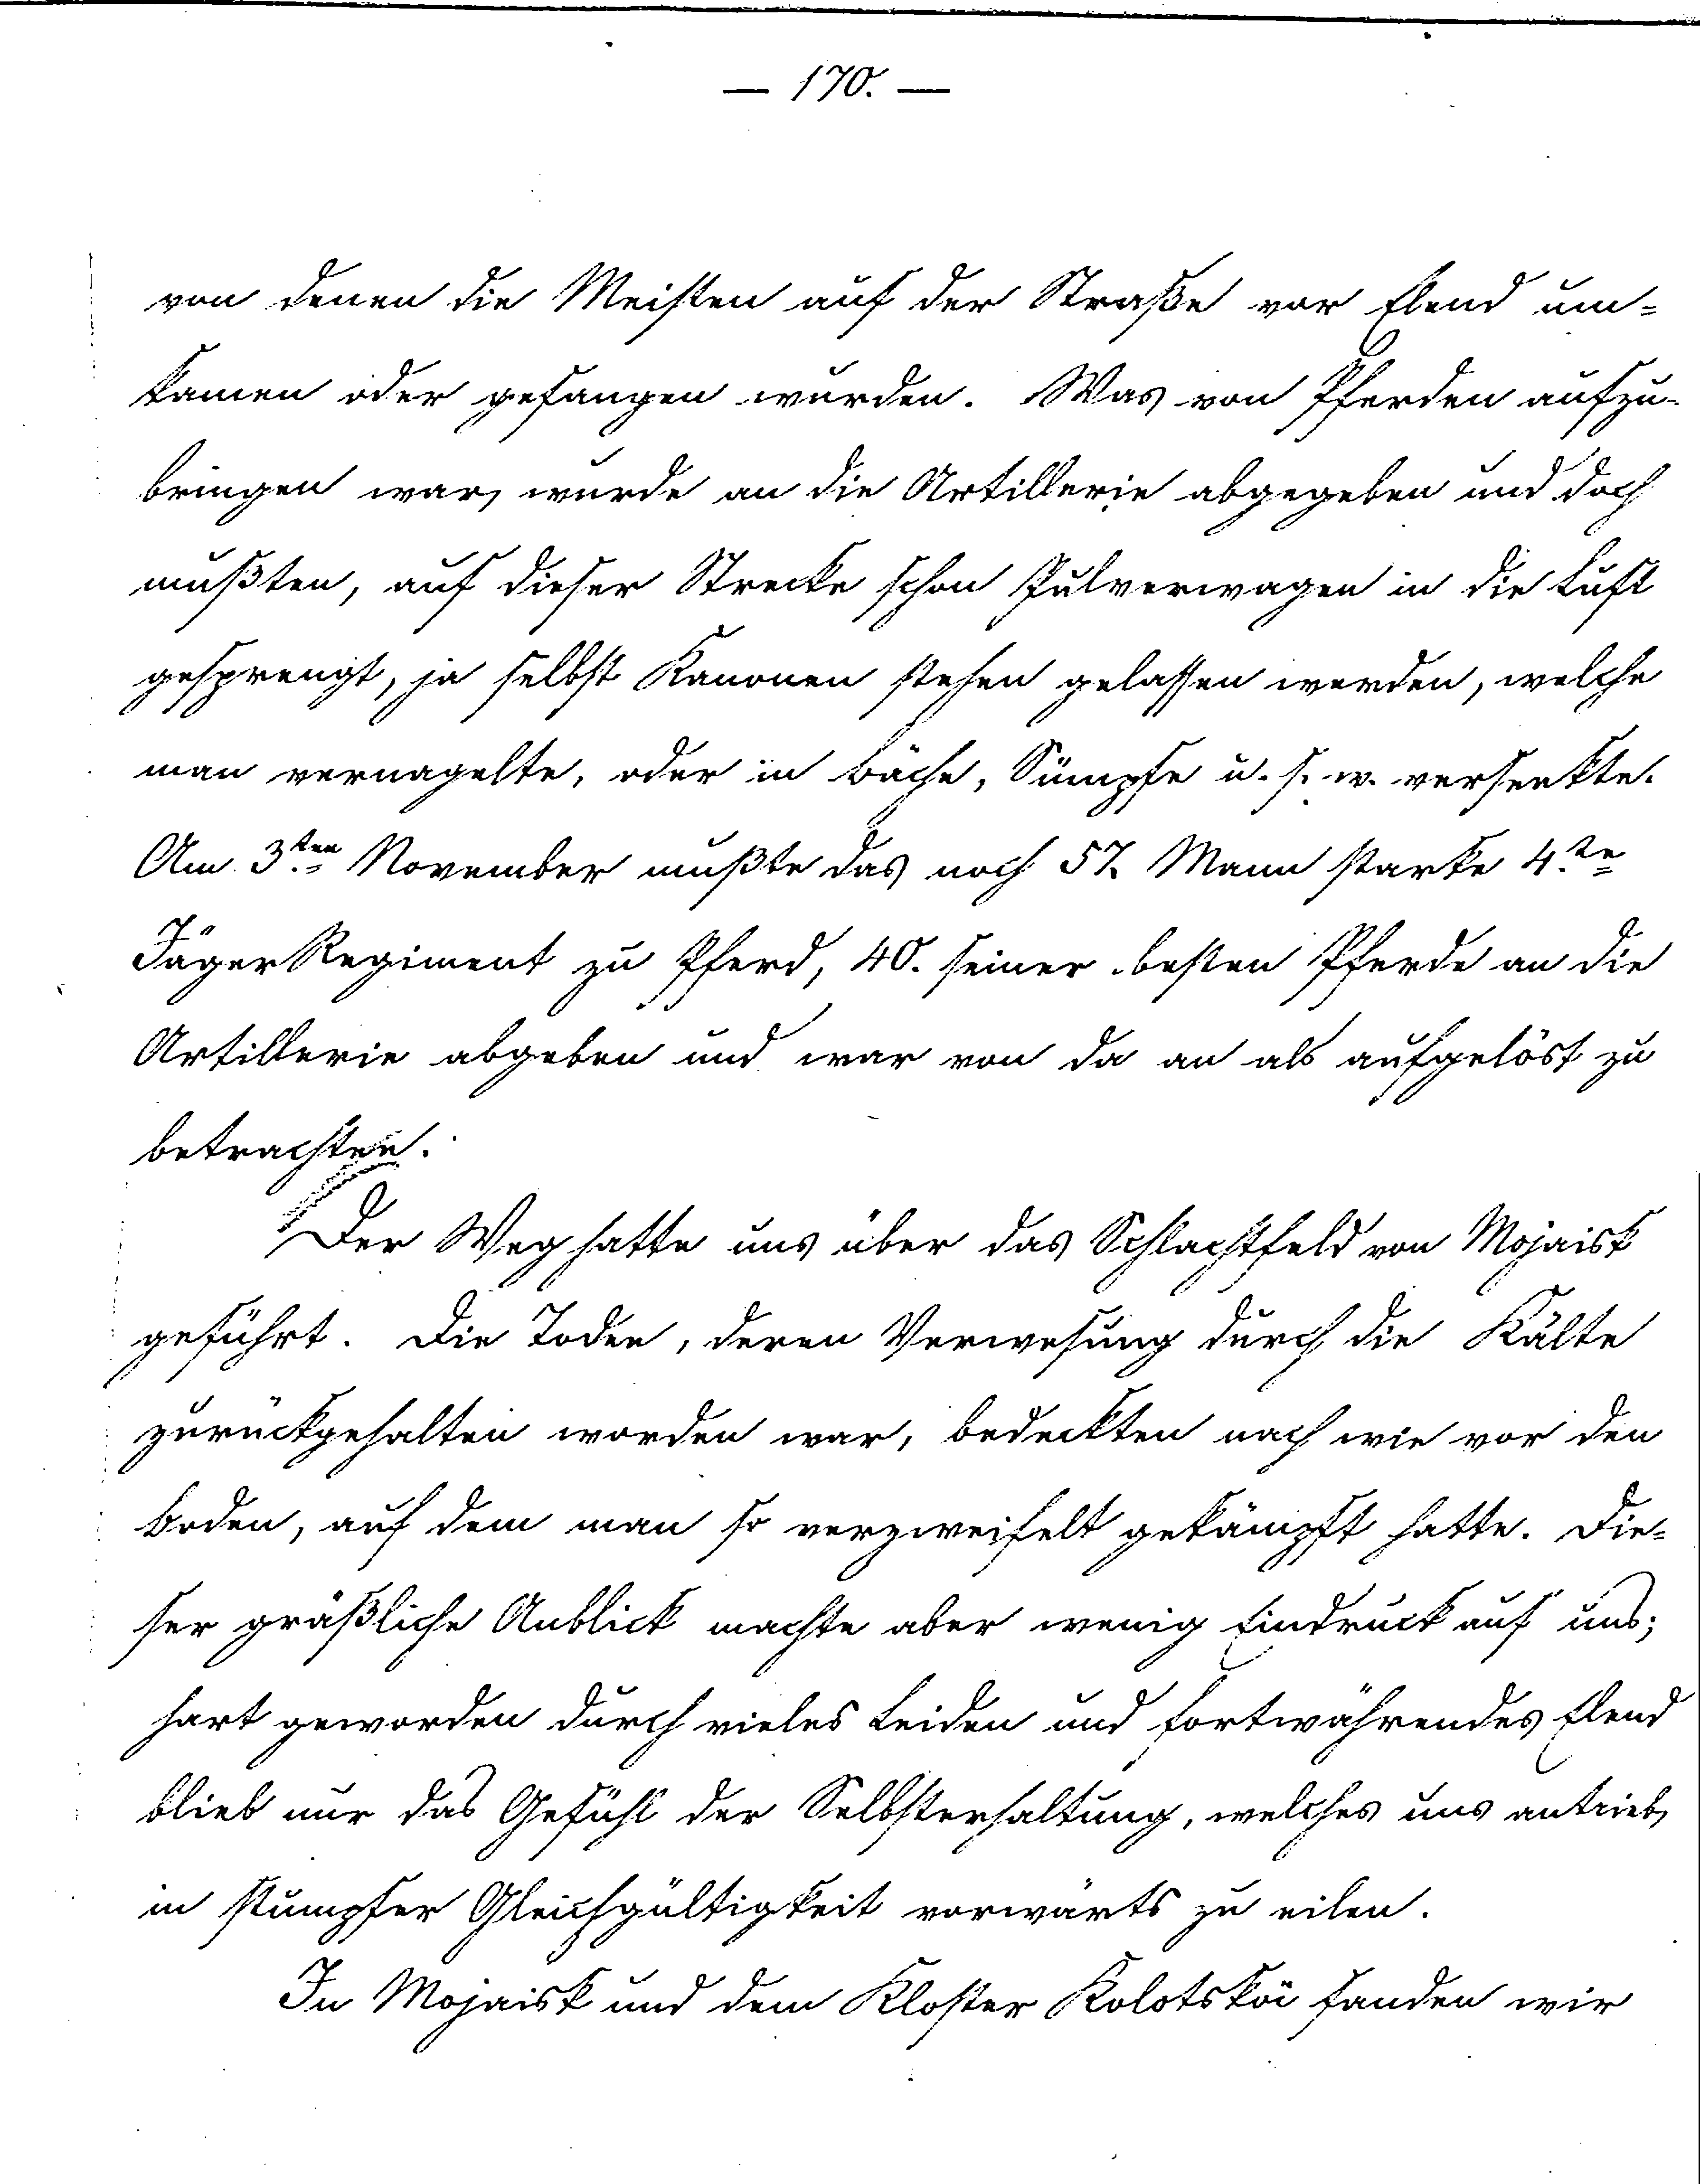 — 170. —
von denen die Meisten auf der Straße vor Elend um=
kamen oder gefangen wurden. Was von Pferden aufzu-
bringen war, wurde an die Artillerie abgegeben und doch
mußten, auf dieser Strecke schon Pulverwagen in die Luft
gesprengt, ja selbst Kanonen stehen gelassen werden, welche
man vernagelte, oder in Bäche, Sümpfe u. s. w. versenkte.
Am 3ten November mußte das noch 57. Mann starke 4te
Jäger Regiment zu Pferd, 40. seiner besten Pferde an die
Artillerie abgeben und war von da an als aufgelöst zu
betrachten.
Der Weg hatte uns über das Schlachtfeld von Mojaisk
geführt. Die Toden, deren Verwesung durch die Kälte
zurückgehalten worden war, bedeckten nach wie vor den
Boden, auf dem man so verzweifelt gekämpft hatte. Die=
ser gräßliche Anblick machte aber wenig Eindruck auf uns;
hart geworden durch vieles Leiden und fortwährendes Elend
blieb nur das Gefühl der Selbsterhaltung, welches uns antrieb,
in stumpfer Gleichgültigkeit vorwärts zu eilen.
In Mojaisk und dem Kloster Kolotskoi fanden wir